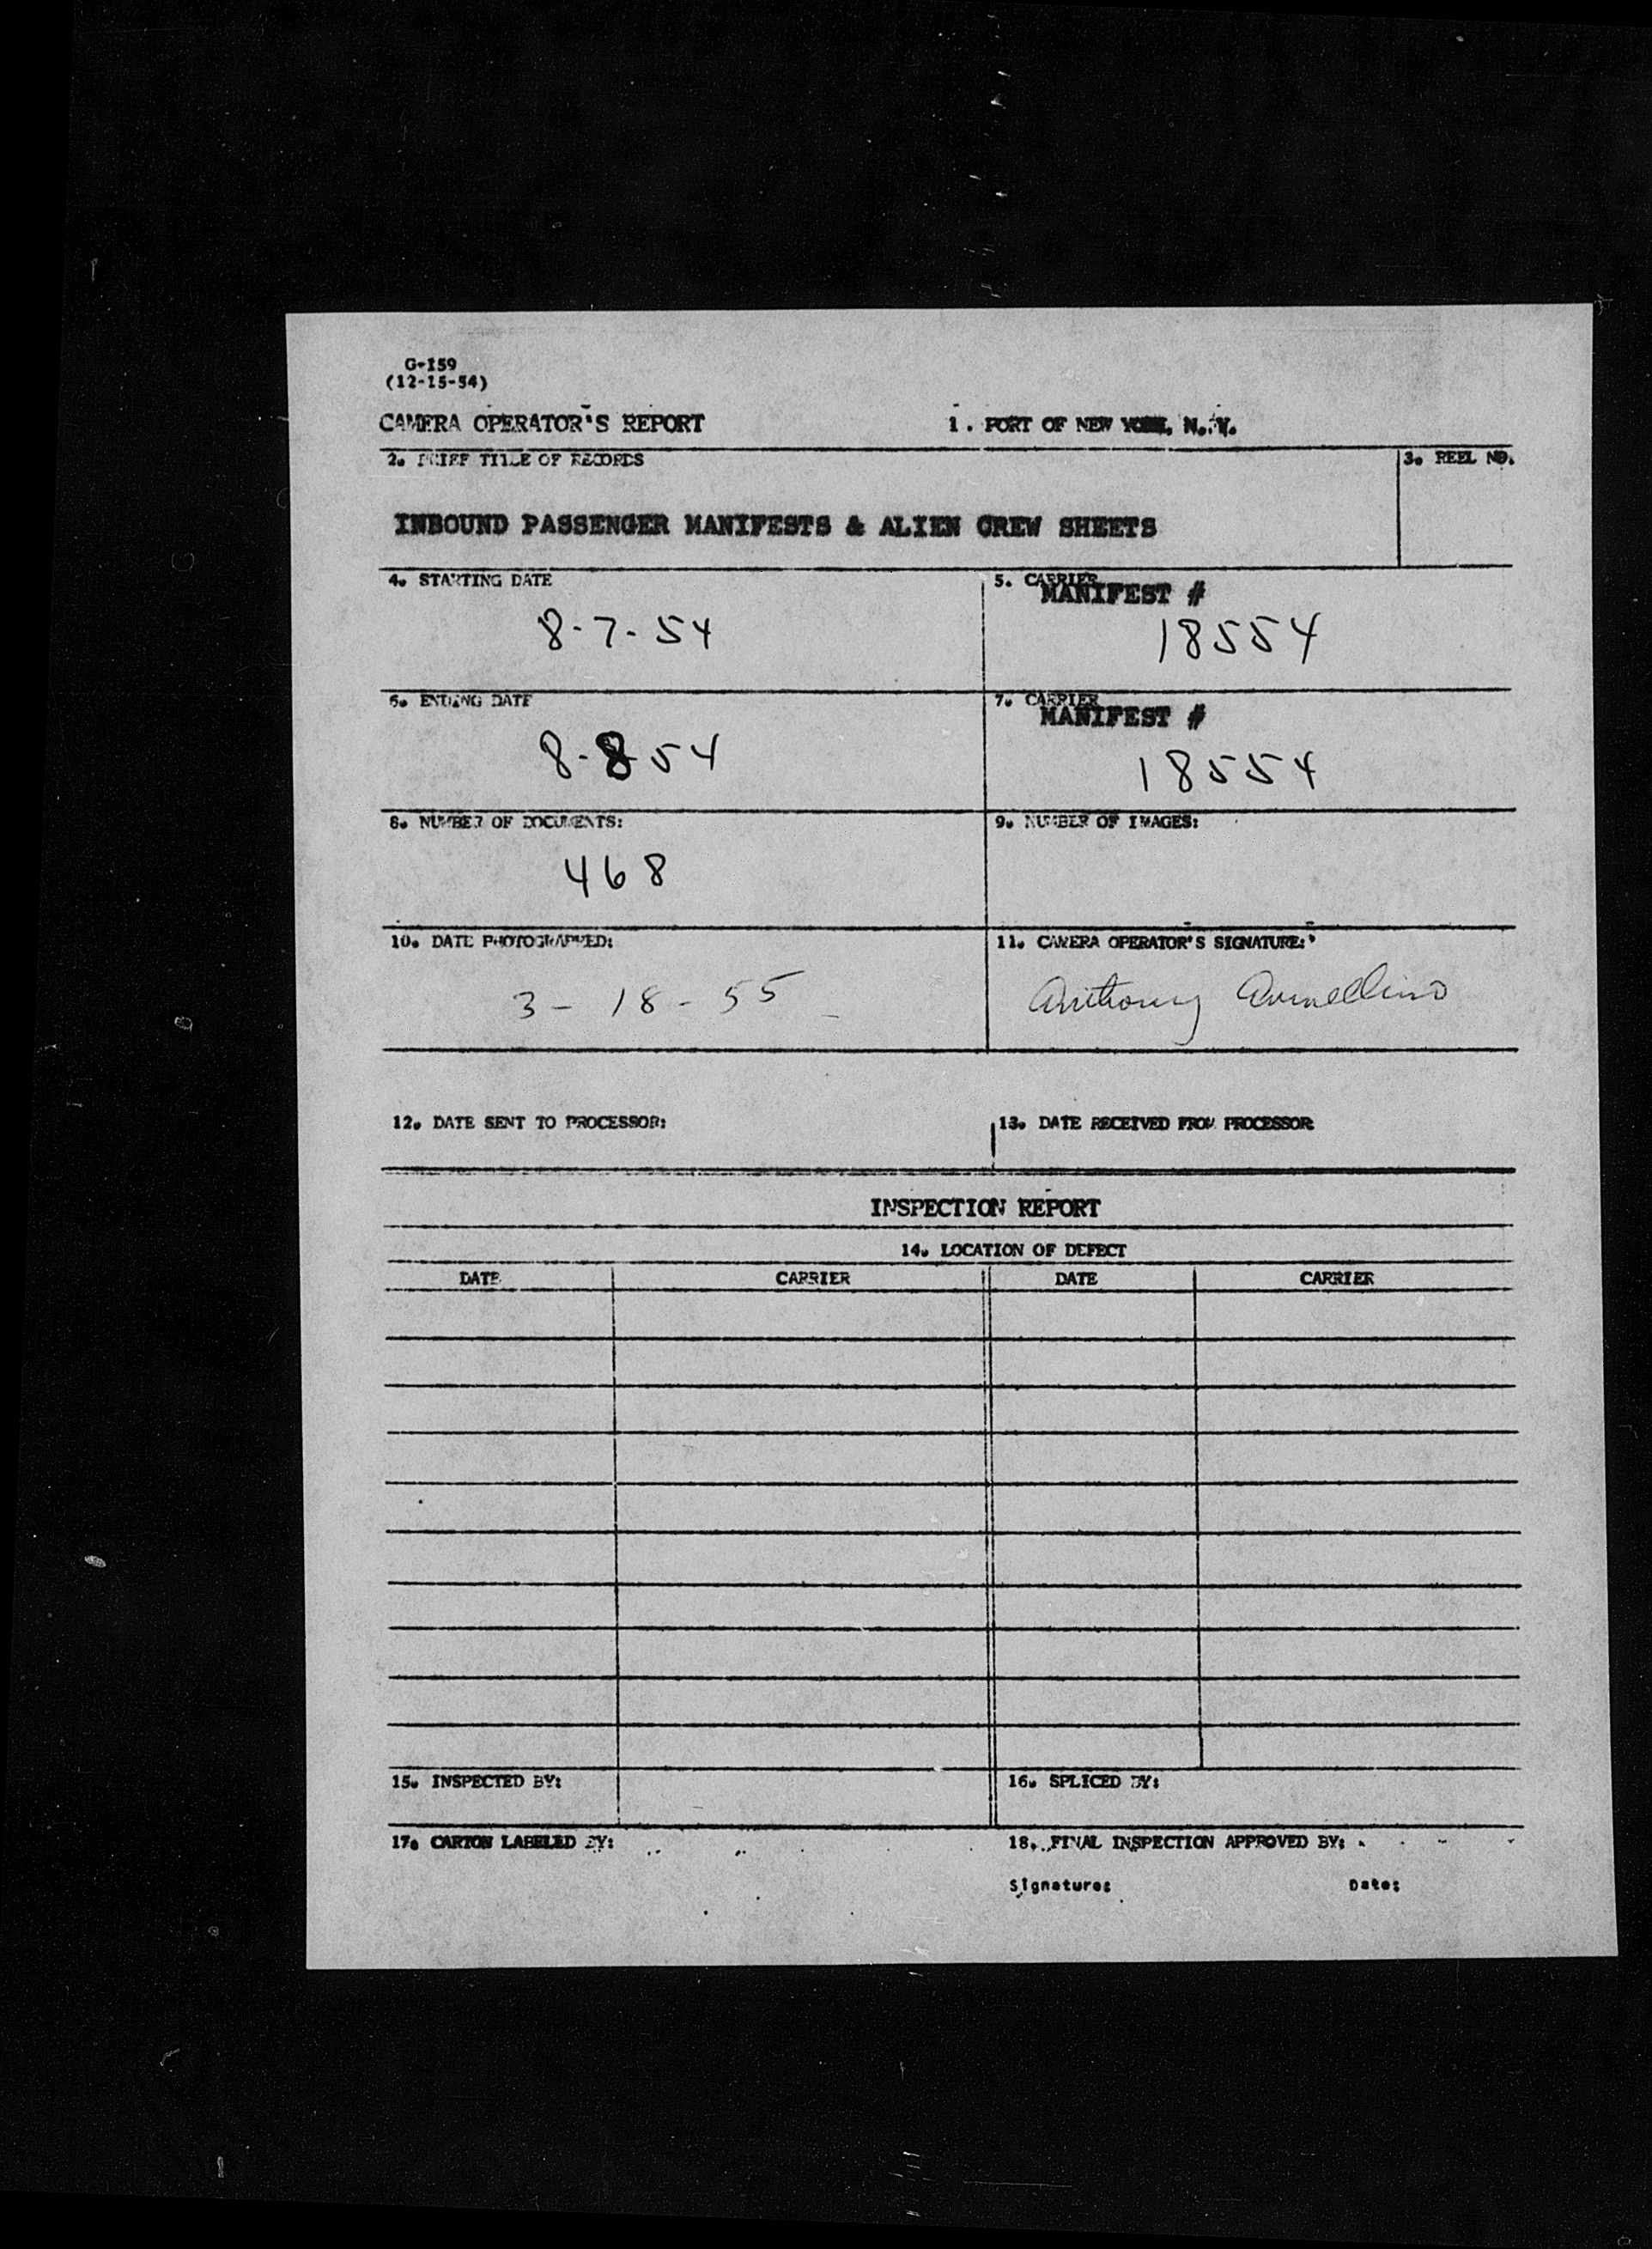 G-159
(12-15-54)
CAMERA OPERATOR'S REPORT 1. PORT OF NEW YORK, N. Y.
2. BRIEF TITLE OF RECORDS 3. REEL NO.
INBOUND PASSENGER MANIFESTS & ALIEN CREW SHEETS
4. STARTING DATE 5. CARRIER
MANIFEST #
8-7-54 18554
6. ENDING DATE 7. CARRIER
MANIFEST #
8-8 54 18554
8. NUMBER OF DOCUMENTS: 9. NUMBER OF IMAGES:
468
10. DATE PHOTOGRAPHED: 11. CAMERA OPERATOR'S SIGNATURE:
3-18-55 Anthony
12. DATE SENT TO PROCESSOR: 13. DATE RECEIVED FROM PROCESSOR
INSPECTION REPORT
14. LOCATION OF DEFECT
DATE CARRIER DATE CARRIER
15. INSPECTED BY: 16. SPLICED BY:
17. CARTON LABELED BY: 18. FINAL INSPECTION APPROVED BY:
Signature: Date: